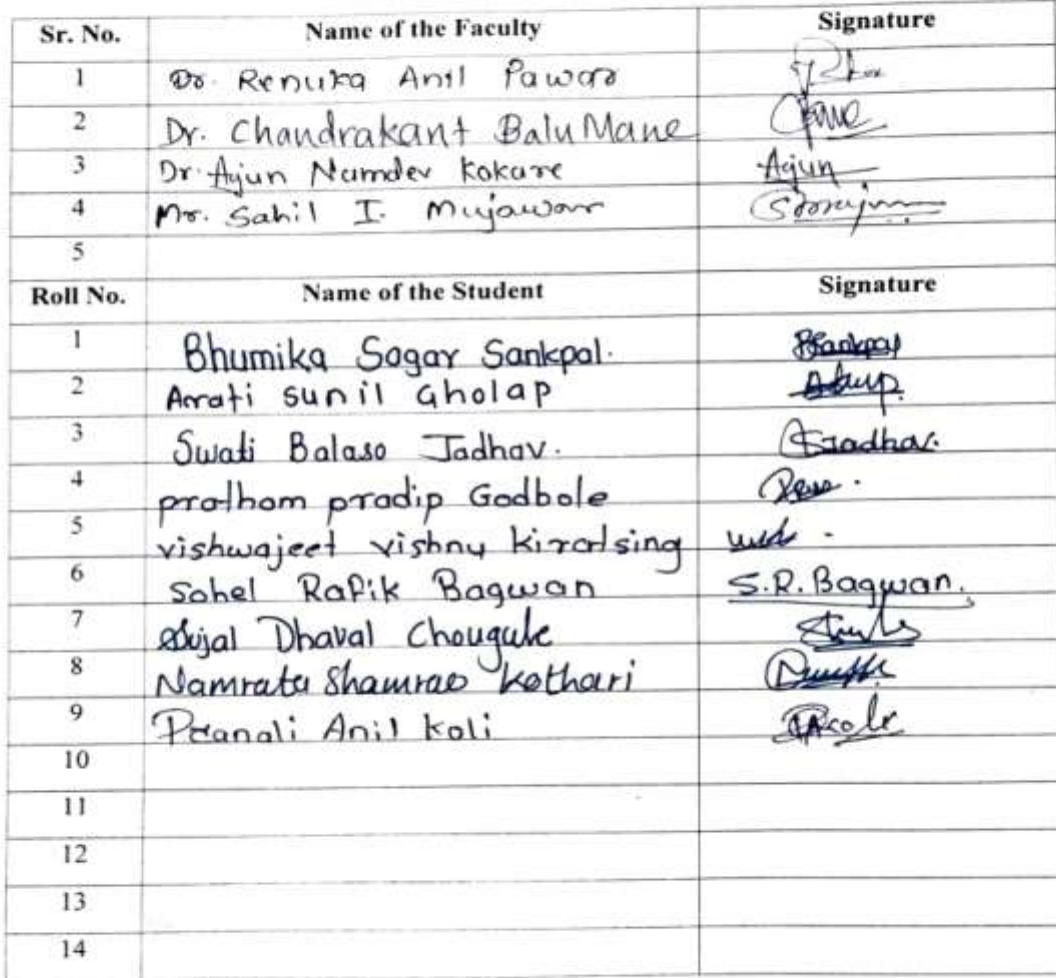 Sr. No. Name of the Faculty Signature
1 Dr. Renuka Anil Pawar
2 Dr. Chandrakant Balu Mane
3 Dr. Arjun Namdev Kokare Arjun
4 Mr. Sahil I. Mujawar
5
Roll No. Name of the Student Signature
1 Bhumika Sagar Sankpal. BSankpal
2 Arati sunil Gholap
3 Swati Balaso Jadhav. SJadhav.
4 pratham pradip Godbole
5 vishwajeet vishnu kiratsing
6 Sohel Rafik Bagwan S.R. Bagwan.
7 Sujal Dhaval Chougule
8 Namrata Shamrao Kothari
9 Pranali Anil Koli
10
11
12
13
14